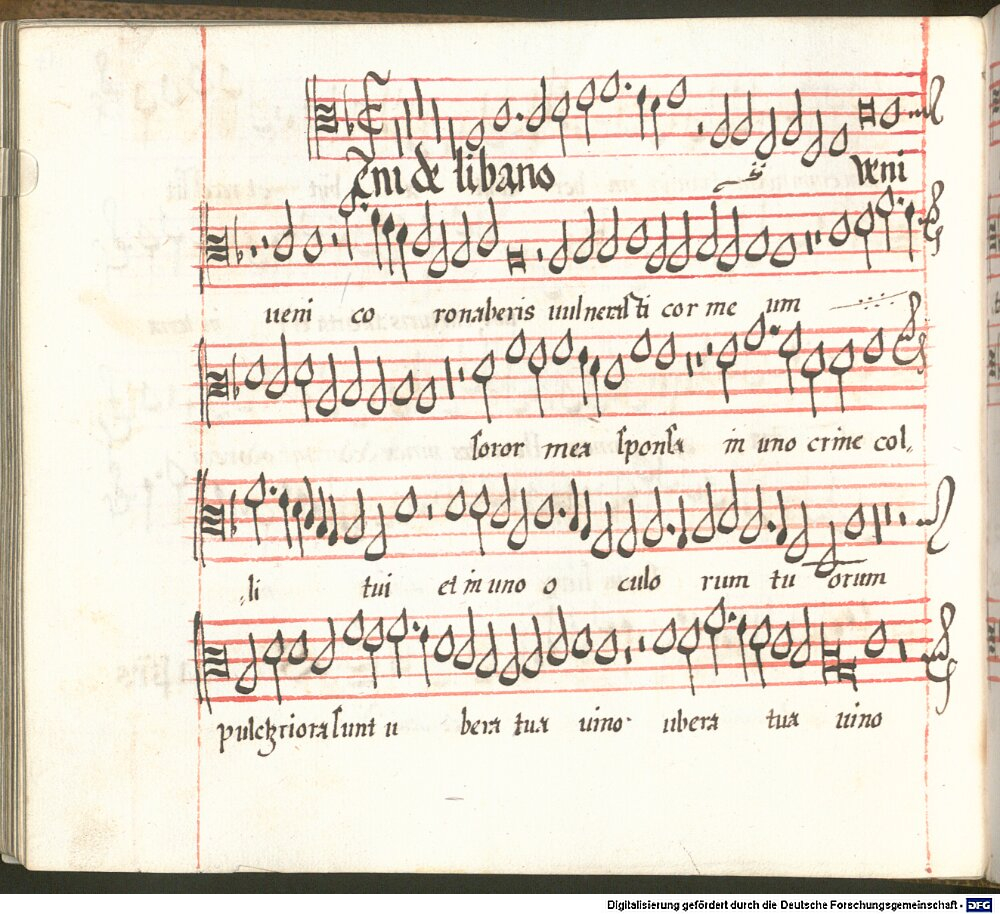 Veni de libano ij veni
veni co ronaberis vulnerasti cor me um
soror mea sponsa in uno crine col-
-li tui et in uno o culo rum tu orum
pulchriora sunt u bera tua uino ubera tua uino
Digitalisierung gefördert durch die Deutsche Forschungsgemeinschaft - DFG